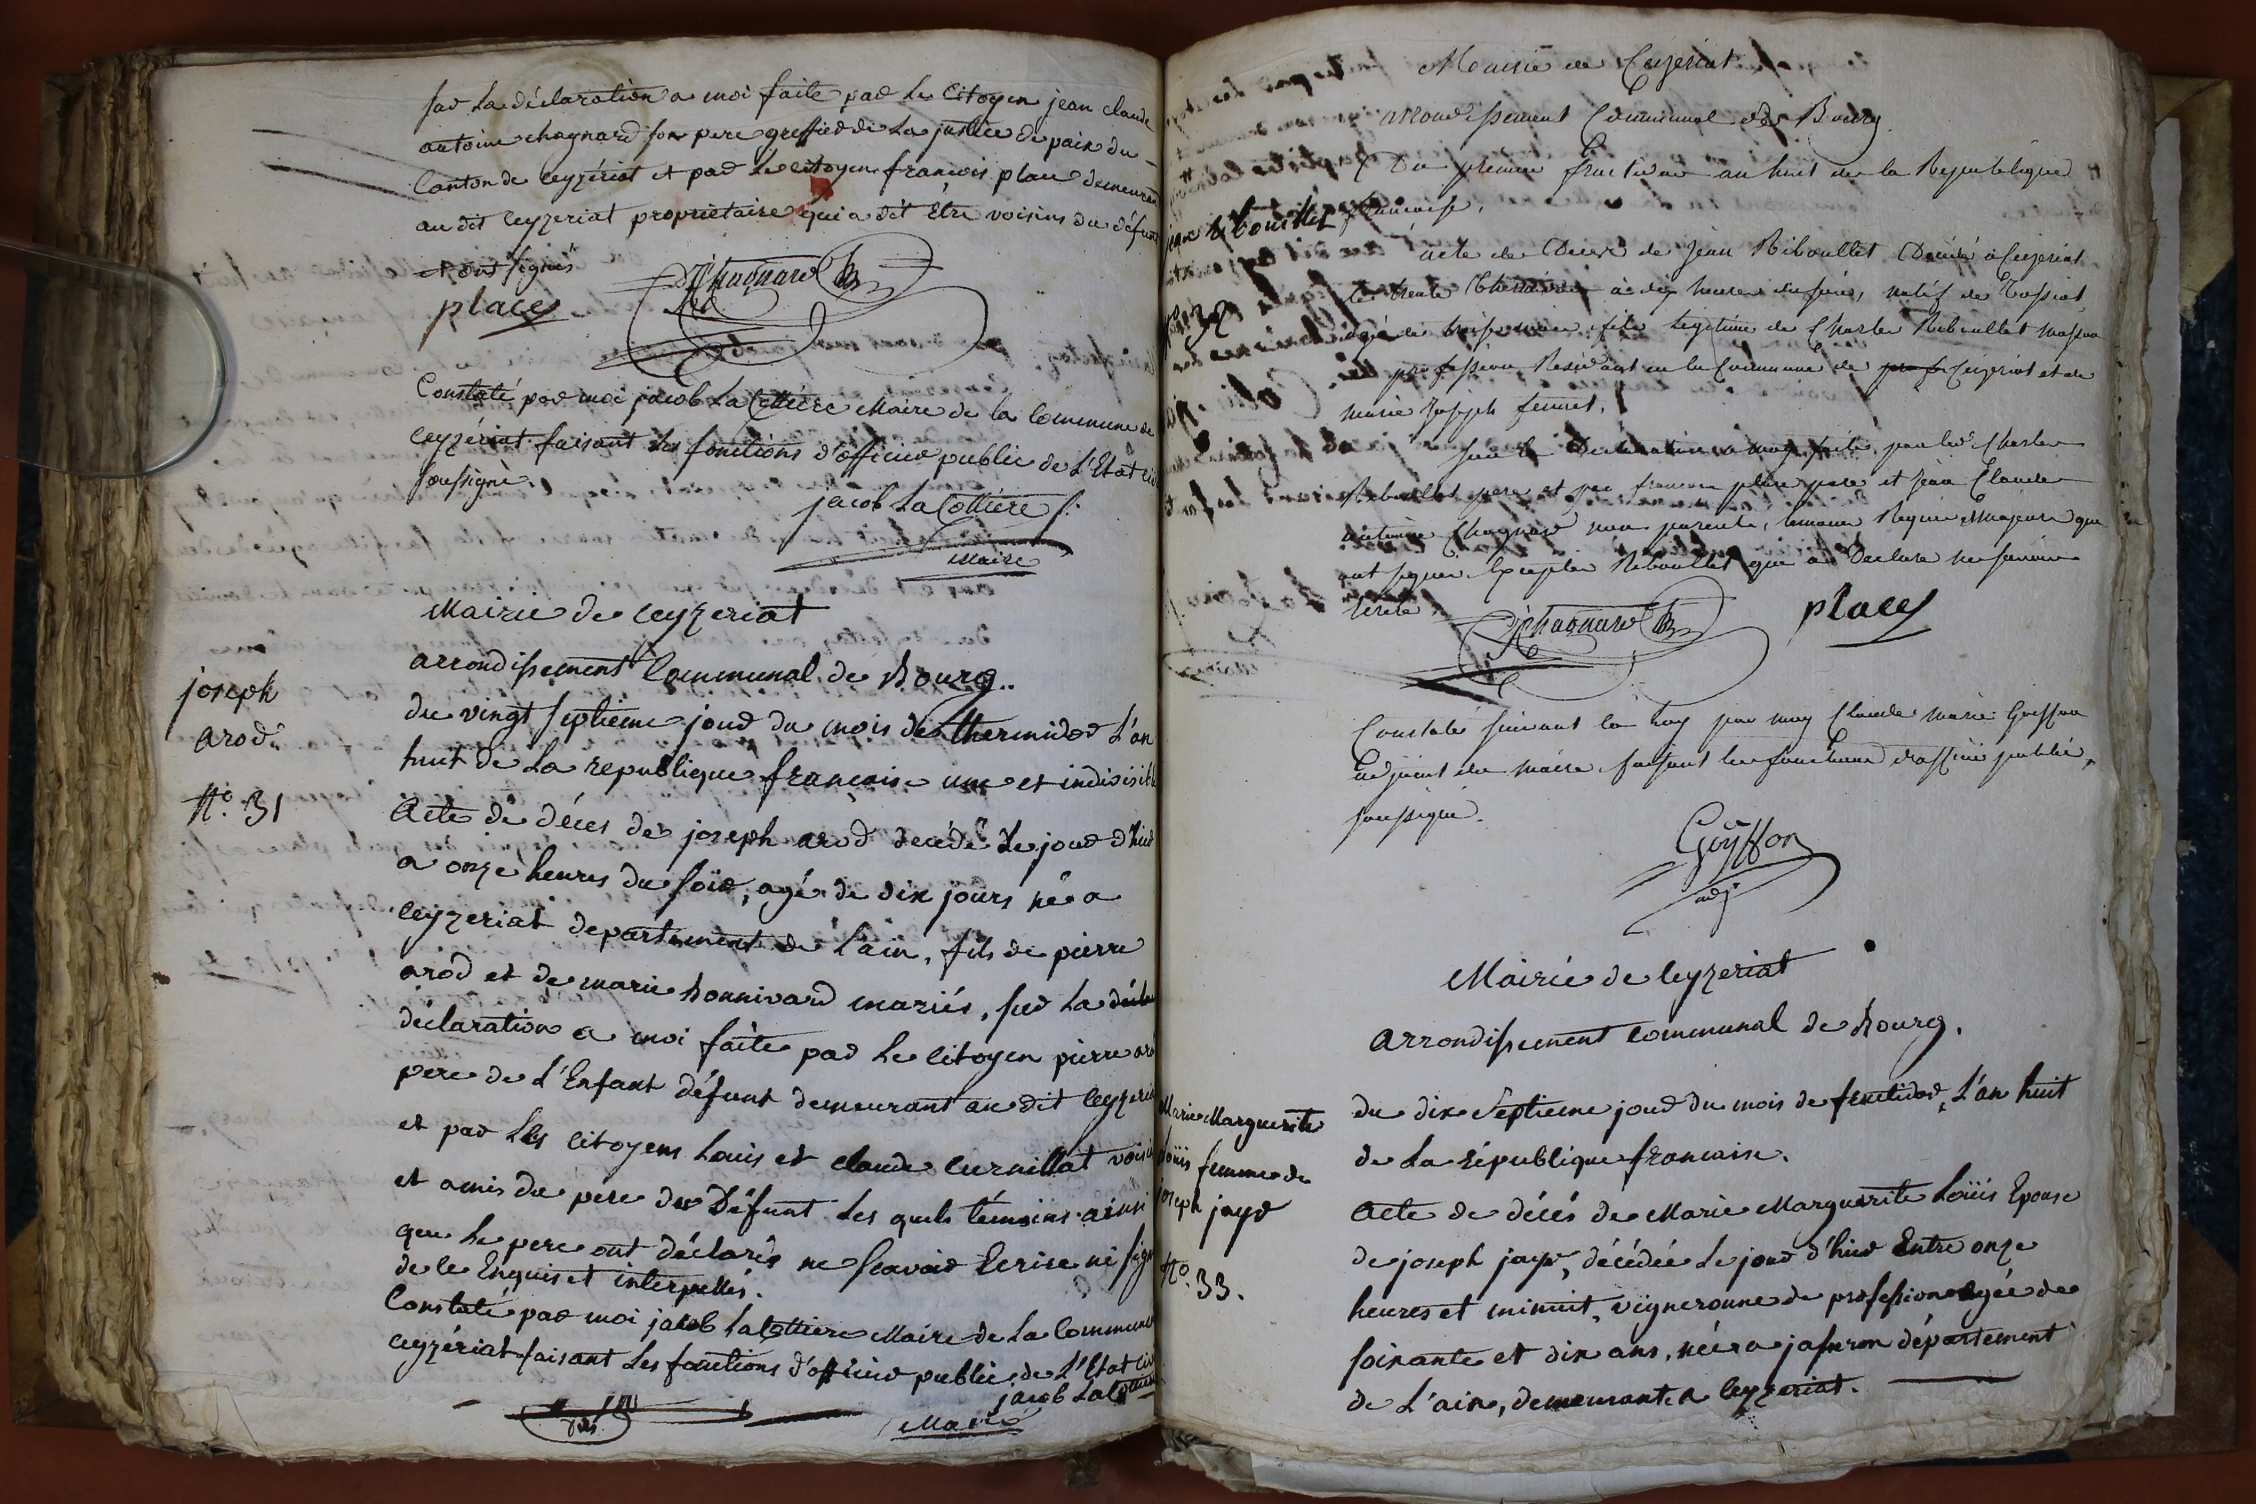 sur La déclaration a moi faite par Le Citoyen jean claude
antoine chagnard son pere greffier de La justice de paix du
Canton de ceyzériat et par Le citoyen françois place demeurant
au dit ceyzeriat proprietaire qui a dit Etre voisins du défunt
Nous signés
place Chagnard
Constaté par moi jacob La Cottière Maire de la Commune de
ceyzériat faisant Les fonctions d'officier public de L'Etat civ
soussigné
jacob La Cottiere
Maire
Mairie de ceyzeriat
arrondissement Communal de Bourg
joseph
arod
N.º 31
du vingt septieme jour du mois de thermidor L'an
huit de La republique francaise une et indivisible
Acte de décès de joseph arod decédé Le jour d'hier
a onze heures du soir, agé de dix jours né a
ceyzeriat departement de L'ain, fils de pierre
arod et de marie bonnivard mariés, sur La décla
déclaration a moi faite par Le citoyen pierre aro
pere de L'Enfant défunt demeurant au dit ceyzeri
et par Les citoyens Louis et claude curnillat voisi
et amis du pere du Défunt Les quels témoins ainsi
que Le pere ont déclarés ne Scavoir Ecrire ni sign
de le Enquis et interpellés.
Constaté par moi jacob La Cottiere Maire de La Commune
ceyzériat faisant Les fonctions d'officier public de L'Etat civ
jacob La Cottiere
Maire
Mairie de Ceyzeriat
arrondissement Communal de Bourg
Du premier fructidor an huit de la Republique
francaise.
jean Riboullet
N.º 32
acte de Deces de Jean Riboullet Décédé a Ceyzeriat
le trente Thermidor a dix heures du soir, natif de Tossiat
agé de trois mois fils legitime de Charles Riboullet masson
profession Residant en la Commune de prof Ceyzeriat et de
marie Joseph
Sur la Declaration a moy faite par led. Charles
Riboullet pere et par francois place pere et Jean Claude
antoine Chagnard non parents, temoins Requis Majeurs qui
ont signes Excepter Riboullet qui a Declare ne savoir
Ecrire
Chagnard place
Constaté suivant la Loy par moy Claude marie Guisson
adjoint du maire faisant les fonctions d'officié public,
soussigné.
Guysson
adj.
Mairie de Ceyzeriat
arrondissement communal de bourg.
Marie Marguerite
Loüis femme de
joseph jayr
N.º 33.
du dix Septieme jour du mois de fructidor, L'an huit
de La république francaise.
acte de décés de Marie Marguerite Loüis Epouse
de joseph jayr, décédée Le jour d'hier Entre onze
heures et minuit, vigneronne de profession agée de
soixante et dix ans, née a jasseron département
de L'ain, demeurante a Ceyzeriat.